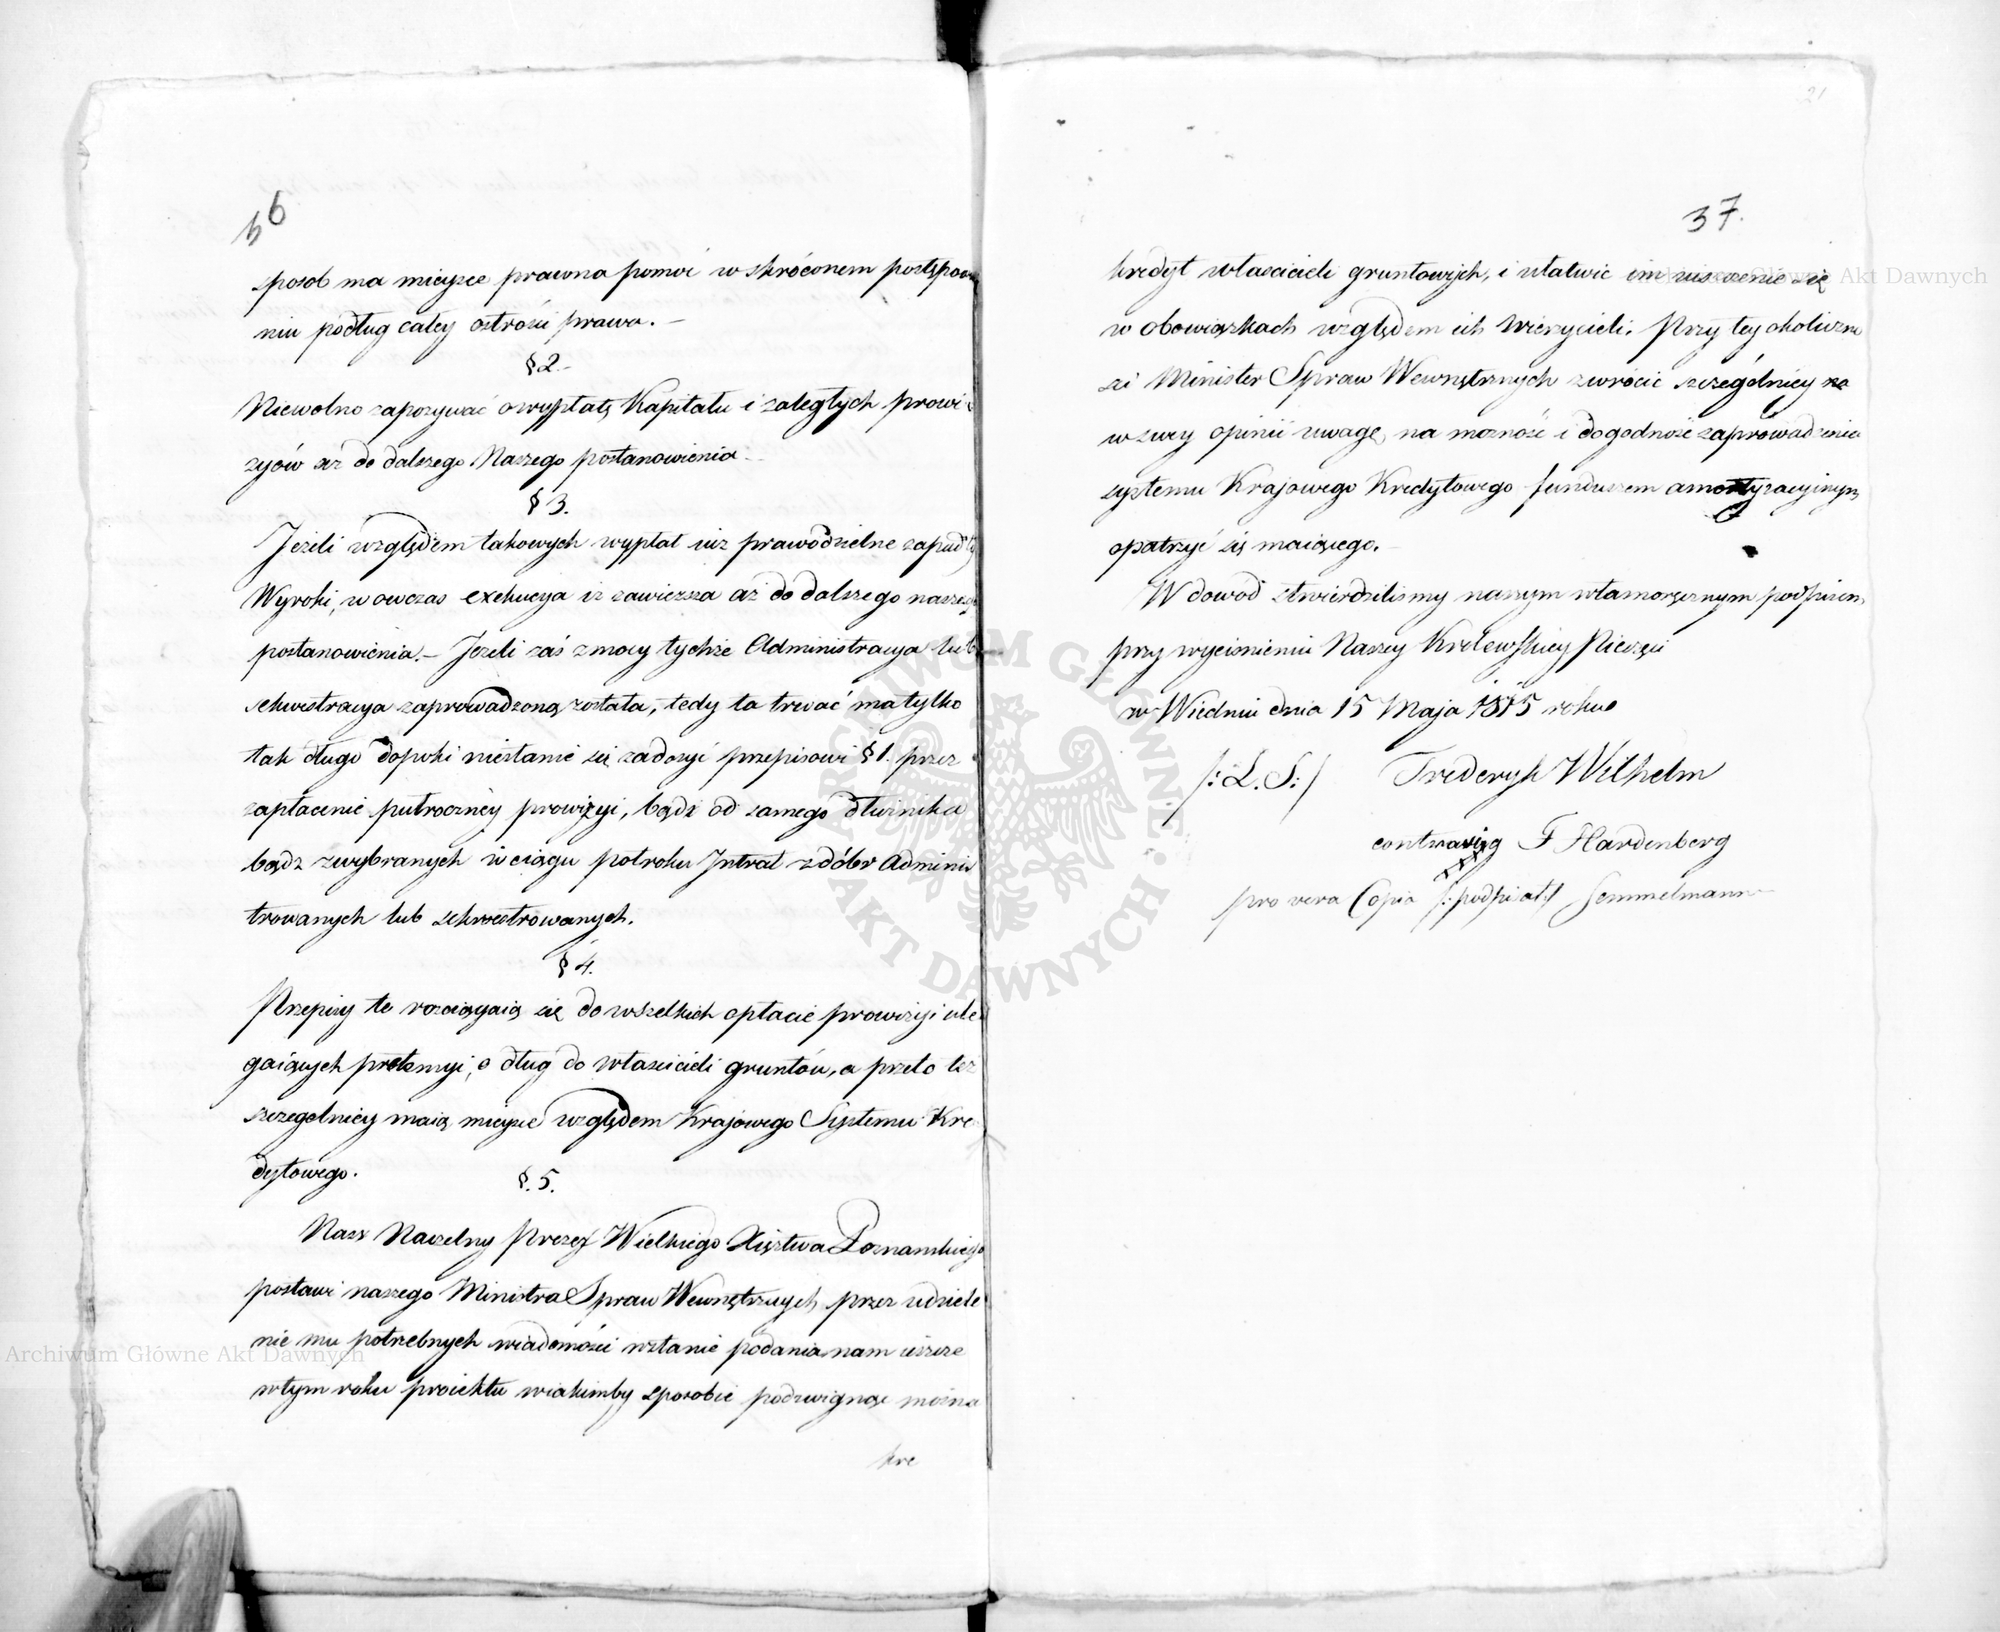 36
sposob ma mieysce prawna pomoc w skróconem postępowa
niu podług całey ostrości prawa. –
§ 2. –
Niewolno zapozywać o wypłatę Kapitału i zaległych prowi
zyów aż do dalszego Naszego postanowienia –
§ 3.
Jeżeli względem takowych wypłat iuż prawodzielne zapadły
Wyroki, wowczas exekucya iż zawiesza aż do dalszego naszego
postanowienia. – Jeżeli zaś z mocy tychże Administracya lub
sekwestracya zaprowadzoną została, tedy ta trwać ma tylko
tak długo dopoki niestanie się zadosyć przepisowi § 1. przez
zapłacenie pułroczney prowizyi, bądź od samego dłużnika
bądz z wybranych w ciągu połroku Intrat z dóbr Admini
trowanych lub sekwestrowanych.
§ 4.
Przepisy te rozciągaią się do wszelkich opłacie prowizyi ule
gaiących pretensyi, o dług do właścicieli gruntów, a przeto też
szczegolniey maią mieysce względem Krajowego Systemu Kre
dytowego.
§. 5.
Nasz Naczelny Prezes Wielkiego Xięztwa Poznańskiego
postawi naszego Ministra Spraw Wewnętrznych, przez udziele
nie mu potrzebnych wiadomości w stanie podania nam ieszcze
w tym roku proiektu w iakimby sposobie podzwignąć można
kre
21
37.
kredyt właścicieli gruntowych, i ułatwić im uiszczenie się
w obowiązkach względem ich Wierzycieli. Przy tey okolicznoś
ci Minister Spraw Wewnętrznych zwrócić szczególniey na
w swey opinii uwagę, na możność i dogodność zaprowadzenia
systemu Krajowego Kredytowego funduszem amortyzacyinym
opatrzyć się maiącego. –
W dowod stwierdziliśmy naszym własnoręcznym podpisem
przy wyciśnieniu Naszey Królewskiey Pieczęci
w Wiedniu dnia 15 Maja 1815 roku
/: L. S: / Frederyk Wilhelm
contrasig F Hardenberg
pro vera Copia /: podpisał :/ Semmelmann
ARCHIWUM GŁÓWNE AKT DAWNYCH
Archiwum Główne Akt Dawnych
Archiwum Główne Akt Dawnych